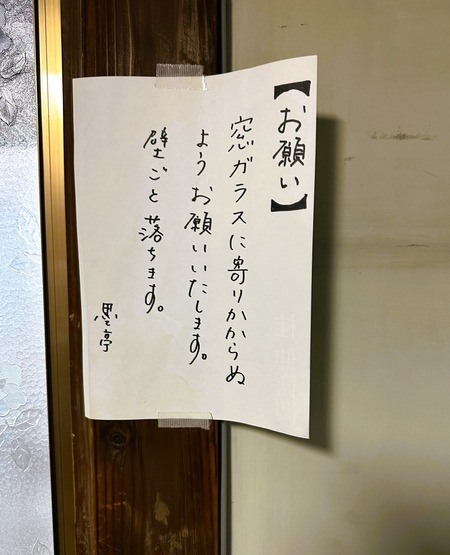 【お願い】
窓ガラスに寄りかからぬ
ようお願いいたします。
壁ごと落ちます。